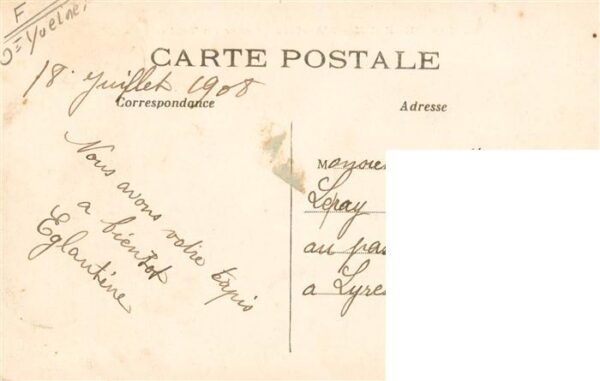 F
CARTE POSTALE
18 Juillet 1908
Correspondance
Adresse
Nous avons votre tapis
a bientot
Eglantine
Lepay
au
a